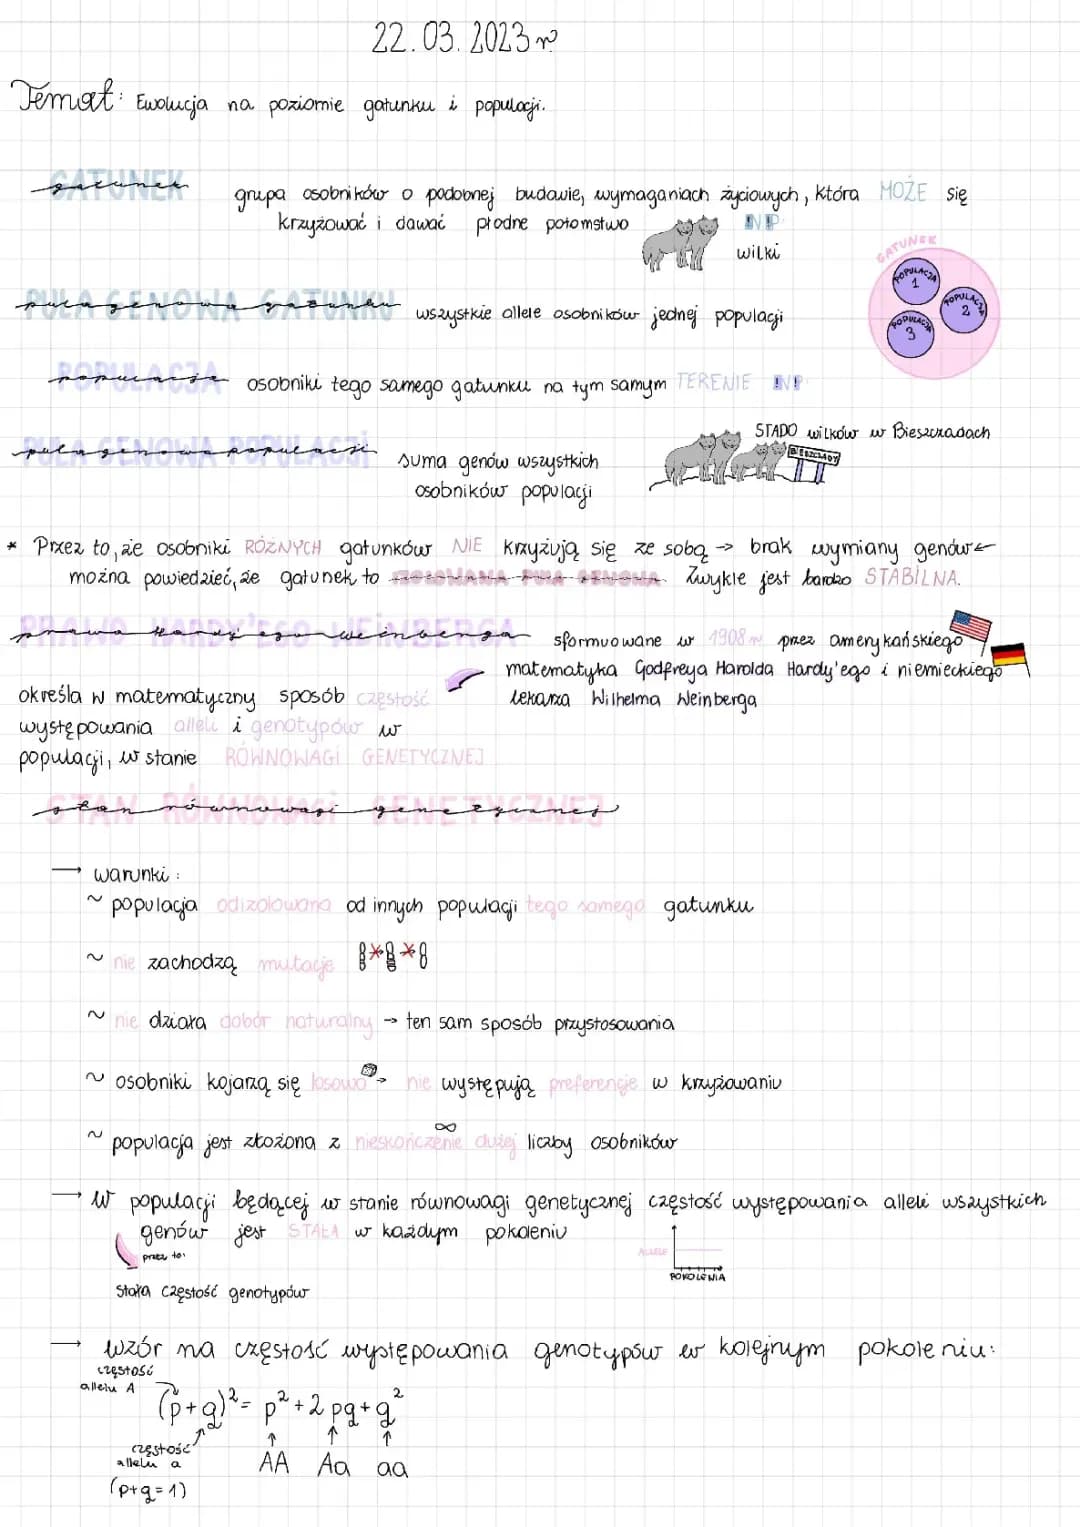 22.03.2023r
Temat: Ewolucja na poziomie gatunku i populacji.
GATUNEK
gatunek
grupa osobników o podobnej budowie, wymaganiach życiowych, która MOŻE się
krzyżować i dawać płodne potomstwo
NP
wilki
GATUNEK
POPULACJA 1
POPULACJA 2
POPULACJA 3
PULA GENOWA GATUNKU
pula genowa gatunku
wszystkie allele osobników jednej populacji
POPULACJA
populacja
osobniki tego samego gatunku na tym samym TERENIE NP
PULA GENOWA POPULACJI
pula genowa populacji
suma genów wszystkich
osobników populacji
STADO wilków w Bieszczadach
BIESZCZADY
* Przez to, że osobniki RÓŻNYCH gatunków NIE krzyżują się ze sobą → brak wymiany genów ←
można powiedzieć, że gatunek to IZOLOWANA PULA GENOWA. Zwykle jest bardzo STABILNA.
PRAWO HARDY'EGO WEINBERGA
prawo Hardy'ego weinberga
sformuowane w 1908r przez amerykańskiego
matematyka Godfreya Harolda Hardy'ego i niemieckiego
lekarza Wilhelma Weinberga
określa w matematyczny sposób częstość
występowania alleli i genotypów w
populacji, w stanie RÓWNOWAGI GENETYCZNEJ
STAN RÓWNOWAGI GENETYCZNEJ
stan równowagi genetycznej
→ warunki:
~ populacja odizolowana od innych populacji tego samego gatunku
~ nie zachodzą mutacje
~ nie działa dobór naturalny → ten sam sposób przystosowania
~ osobniki kojarzą się losowo → nie występują preferencje w krzyżowaniu
∞
~ populacja jest złożona z nieskończenie dużej liczby osobników
→ W populacji będącej w stanie równowagi genetycznej częstość występowania alleli wszystkich
genów jest STAŁA w każdym pokoleniu
przez to:
ALLELE
POKOLENIA
stała częstość genotypów
→ wzór na częstość występowania genotypów w kolejnym pokoleniu:
częstość
allelu A
(p+q)² = p² + 2pq + q²
częstość
allelu a
AA Aa aa
(p+q=1)